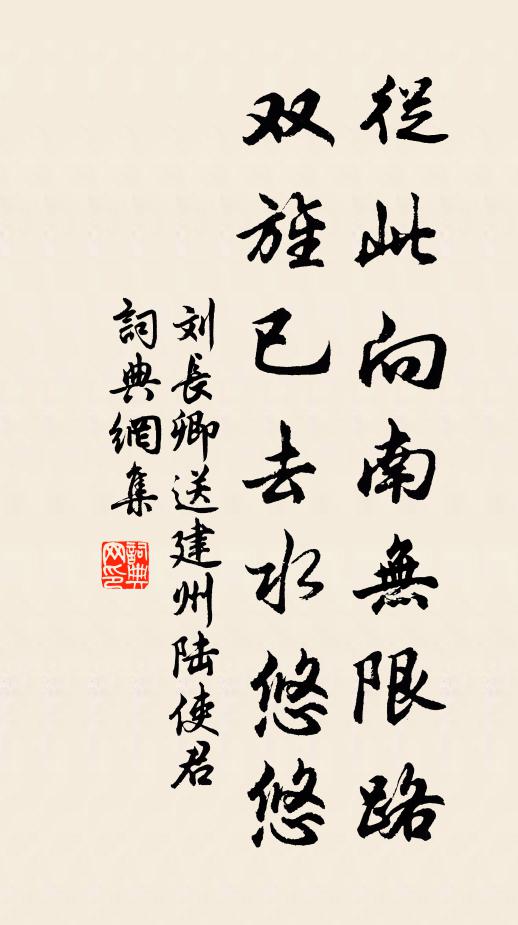 從此向南無限路
双旌已去水悠悠
刘長卿送建州陆使君
詞典網集
詞典网印